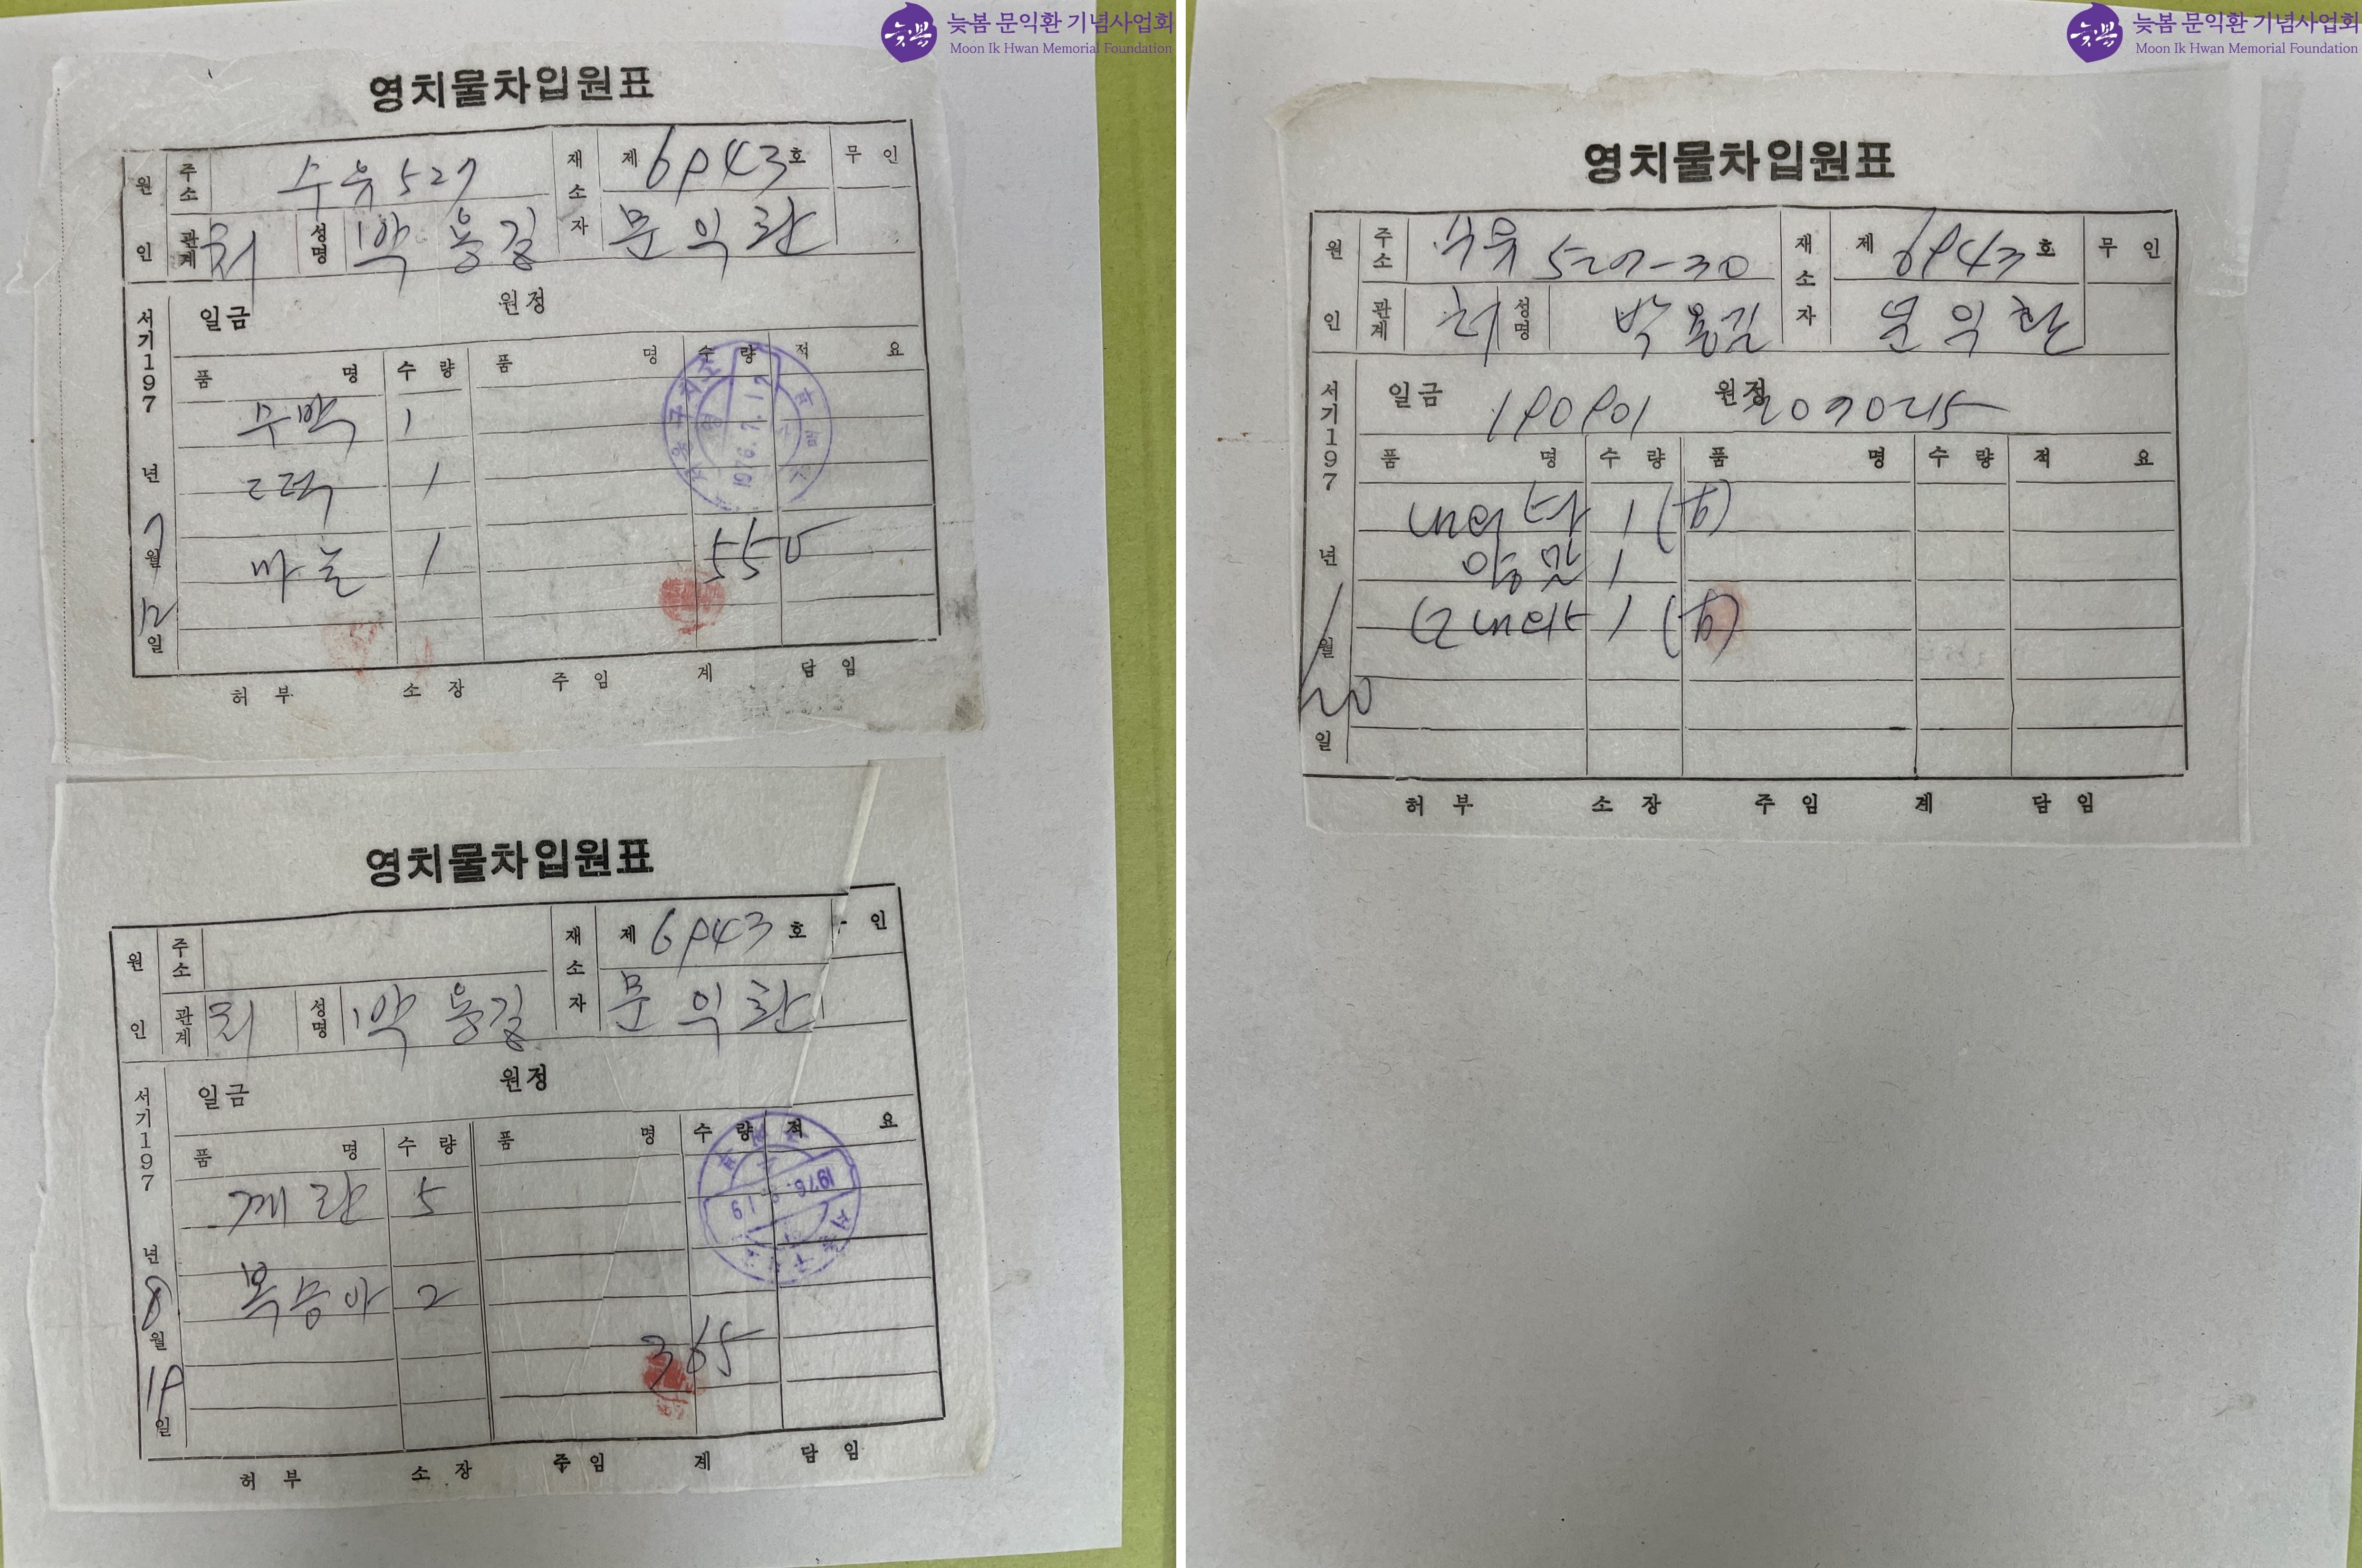 늦봄 문익환 기념사업회
Moon Ik Hwan Memorial Foundation
영치물차입원표
원인 주소 수유 527 재소자 제 6943 호 무인
관계 처 성명 박용길 문익환
서기197 년 7 월 12 일
일금 원정
품명 수량 품명 수량 적요
1
1
마늘 1
550
1976. 7. 12
허부 소장 주임 계 담임
영치물차입원표
원인 주소 재소자 제 6943 호 인
관계 처 성명 박용길 문익환
서기197 년 8 월 19 일
일금 원정
품명 수량 품명 수량 적요
계란 5
복숭아 2
365
허부 소장 주임 계 담임
늦봄 문익환 기념사업회
Moon Ik Hwan Memorial Foundation
영치물차입원표
원인 주소 수유 527-30 재소자 제 6943 호 무인
관계 처 성명 박용길 문익환
서기197 년 1 월 20 일
일금 원정
품명 수량 품명 수량 적요
1
1
1
허부 소장 주임 계 담임